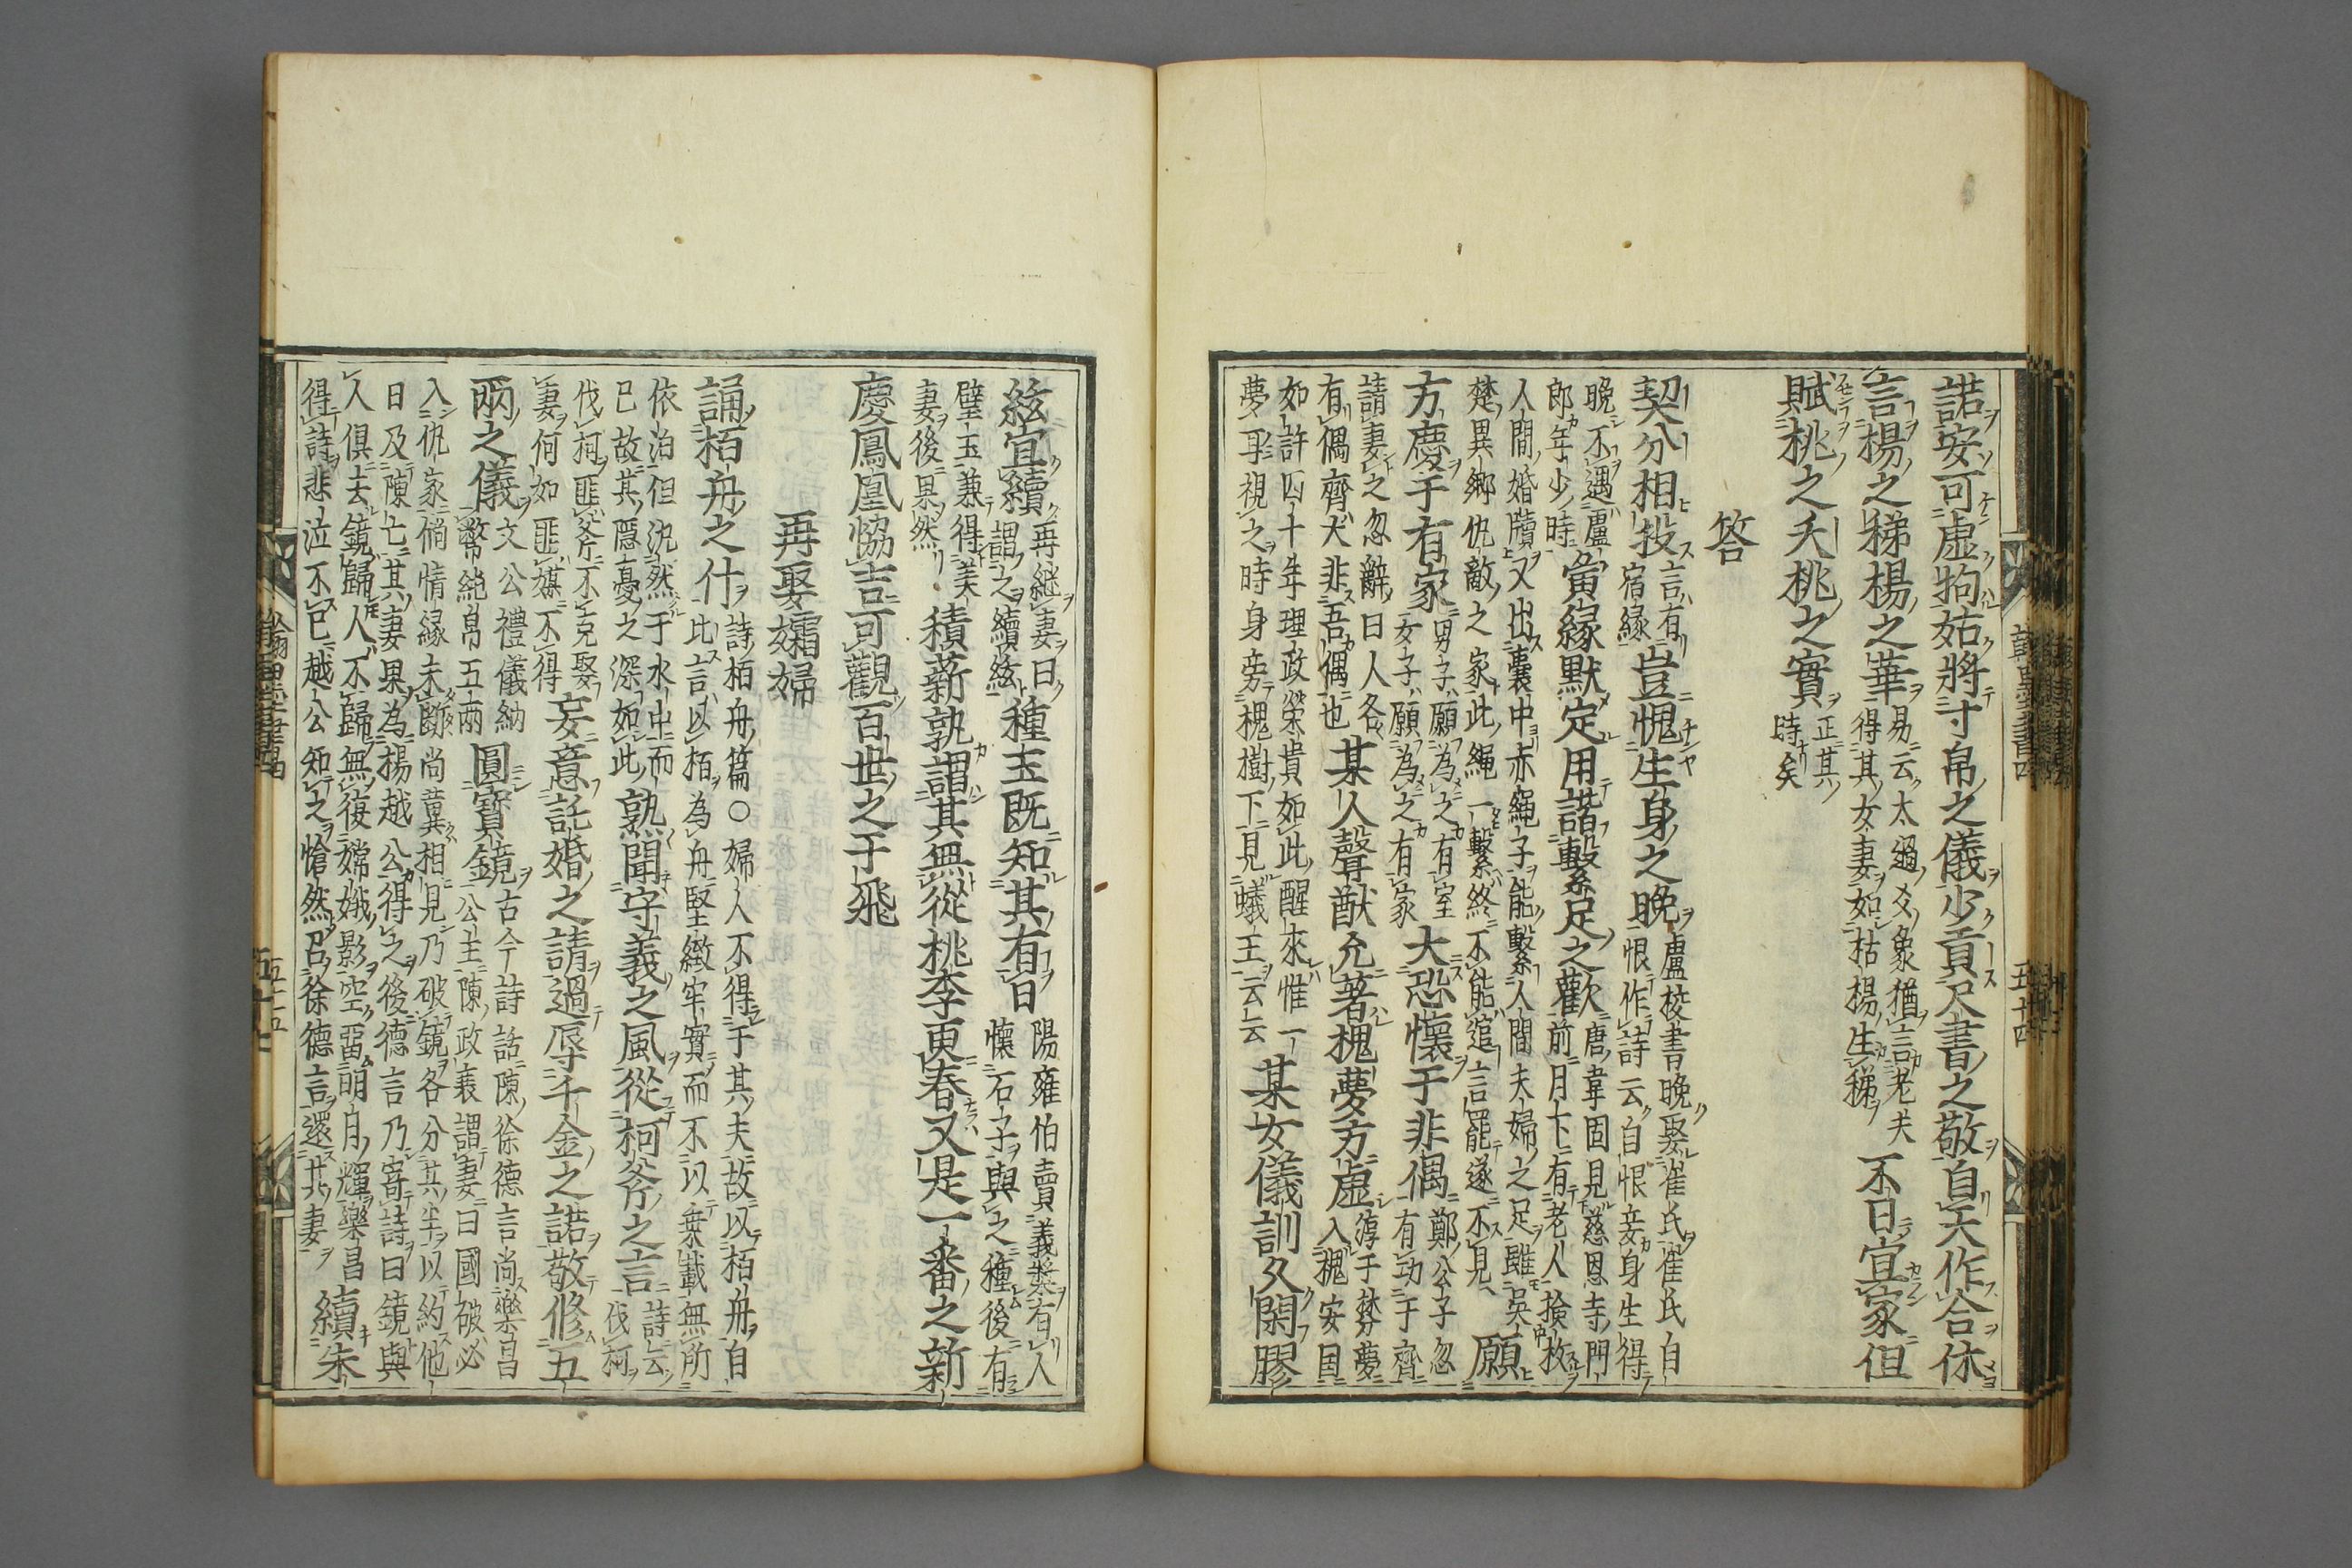 諾安可虛拘姑將寸帛之儀少貢尺書之敬自天作合休
言楊之稊楊之華易云太過爻象猶言老夫
得其女妻如枯楊生稊不日宜家但
賦桃之夭桃之實正其
時矣
答
契分相投言有
宿緣豈愧生身之晚盧校書晚娶崔氏崔氏自
恨作詩云自恨妾身生得
晚不遇盧
郎年少時寅緣默定用諧繫足之歡唐韋固見慈恩寺門
前月下有老人撿故
人間婚牘又出囊中赤繩子能繫人間夫婦之足雖吳
楚異鄉仇敵之家此繩一繫終不能逭言罷遂不見願
方慶于有家男子願為之有室
女子願為之有家大恐懷于非偶鄭公子忽
有功于齊
請妻之忽辭曰人各
有偶齊大非吾偶也某人聲猷允著槐夢方虛淳于棼夢
入槐安国
如許四十年理政榮貴如此醒來惟一
夢耳視之時身旁槐樹下見蟻王云云某女儀訓久閑膠
絃宜續再継妻曰
謂之續絃種玉既知其有日陽雍伯賣義漿有人
懷石子與之種後有
璧玉兼得美
妻後果然積薪孰謂其無從桃李更春又是一番之新
慶鳳凰恊吉可觀百世之于飛
再娶孀婦
誦栢舟之什詩栢舟篇○婦人不得于其夫故以栢舟自
比言以栢為舟堅緻牢實而不以乗載無所
依泊但汎然于水中而
已故其隱憂之深如此孰聞守義之風從柯斧之言詩云
伐柯
伐柯匪斧不克娶
妻何如匪媒不得妄意託婚之請過辱千金之諾敬修五
兩之儀文公禮儀納
幣純帛五兩圓寶鏡古今詩話陳徐德言尚樂昌
公主陳政衰謂妻曰國破必
入仇家倘情緣未斷尚冀相見乃破鏡各分其半以約他
日及陳亡其妻果為楊越公得之後德言乃寄詩曰鏡與
人俱去鏡歸人不歸無復嫦娥影空留明月輝樂昌
得詩悲泣不已越公知之愴然召徐德言還其妻續朱